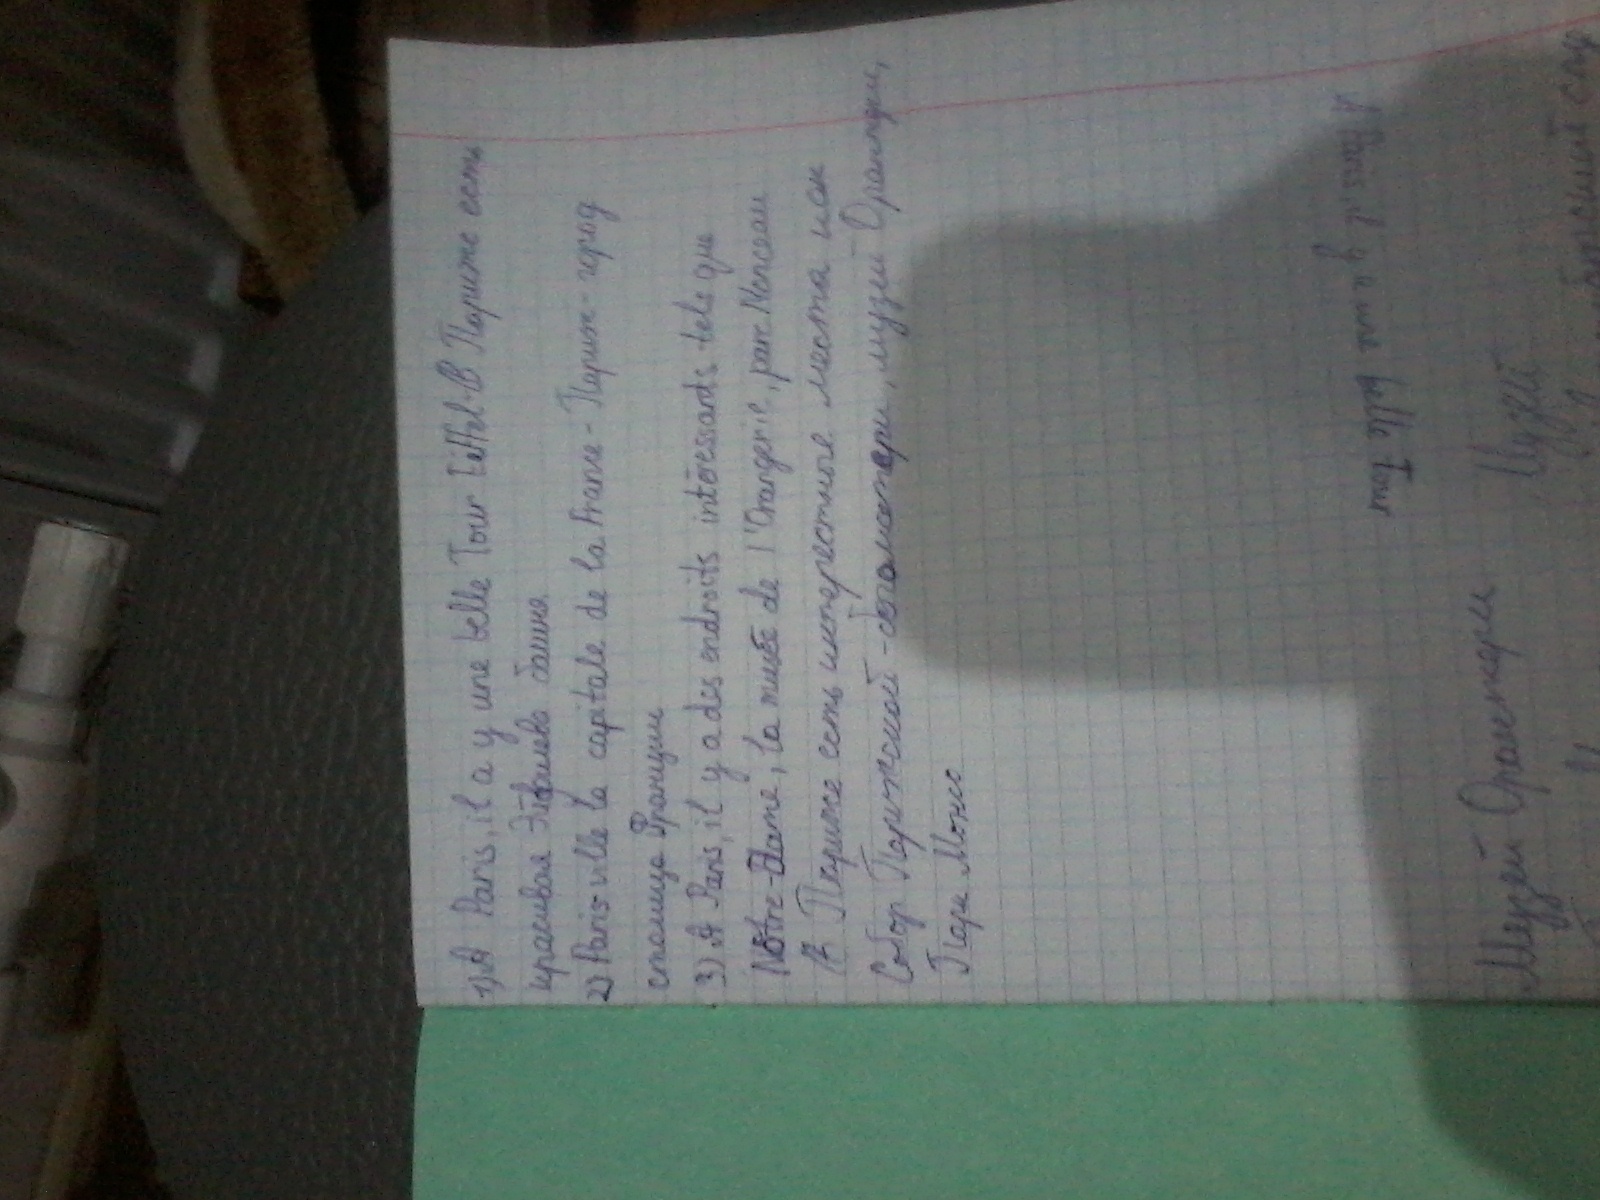 1) A Paris, il a y une belle Tour Eiffel-В Париже есть
красивая Эйфелева башня.
2) Paris ville la capitale de la France - Париж - город
столица Франции
3) A Paris, il y a des endroits intéressants tels que
Notre-Dame, la musée de l'Orangerie, parc Monceau
В Париже есть интересные места как
Собор Парижской - богоматери, музей Оранжери,
Парк Монсо
A Paris, il y a une belle Tour
Музей Оранжери Музей